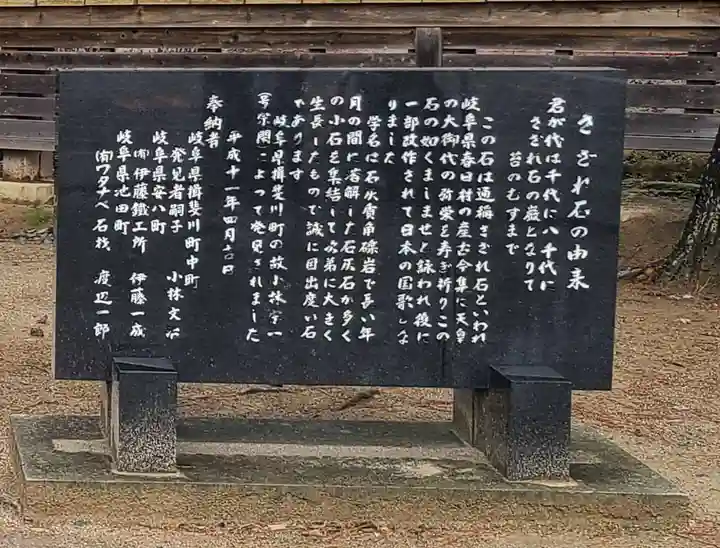 さざれ石の由来
君が代は千代に八千代に
さざれ石の巌となりて
苔のむすまで
この石は通称さざれ石といわれ
岐阜県春日村の産古今集に天皇
の大御代の弥栄を寿ぎ祈りこの
石の如くましませと詠われ後に
一部改作されて日本の国歌になり
ました
学名は石灰質角礫岩で長い年
月の間に溶解した石灰石が多く
の小石を集結して次第に大きく
生長したもので誠に目出度い石
であります
岐阜県揖斐川町の故小林宗一
(号宗閑)によって発見されました
平成十一年四月吉日
奉納者
岐阜県揖斐川町中町
発見者嗣子 小林文治
岐阜県安八町
㈲伊藤鐵工所 伊藤一成
岐阜県池田町
㈲ワタナベ石材 渡辺一郎